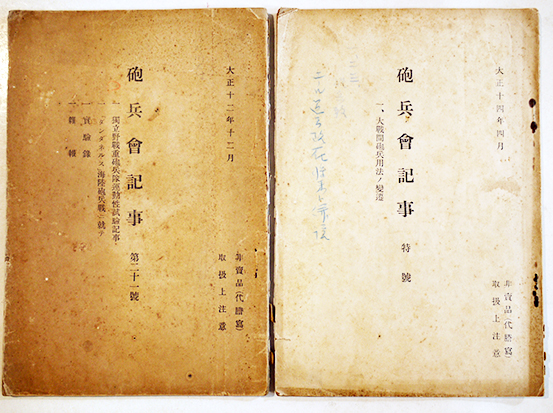 大正十二年十二月
砲兵會記事 第二十一號
一 獨立野戰重砲兵隊運動性試驗記事
一 「ダンダネルス」海陸砲兵戰ニ就テ
一 實驗錄
一 雜報
非賣品(代謄寫)
取扱上注意
大正十四年四月
砲兵會記事 特號
一、大戰間砲兵用法ノ變遷
非賣品(代謄寫)
取扱上注意